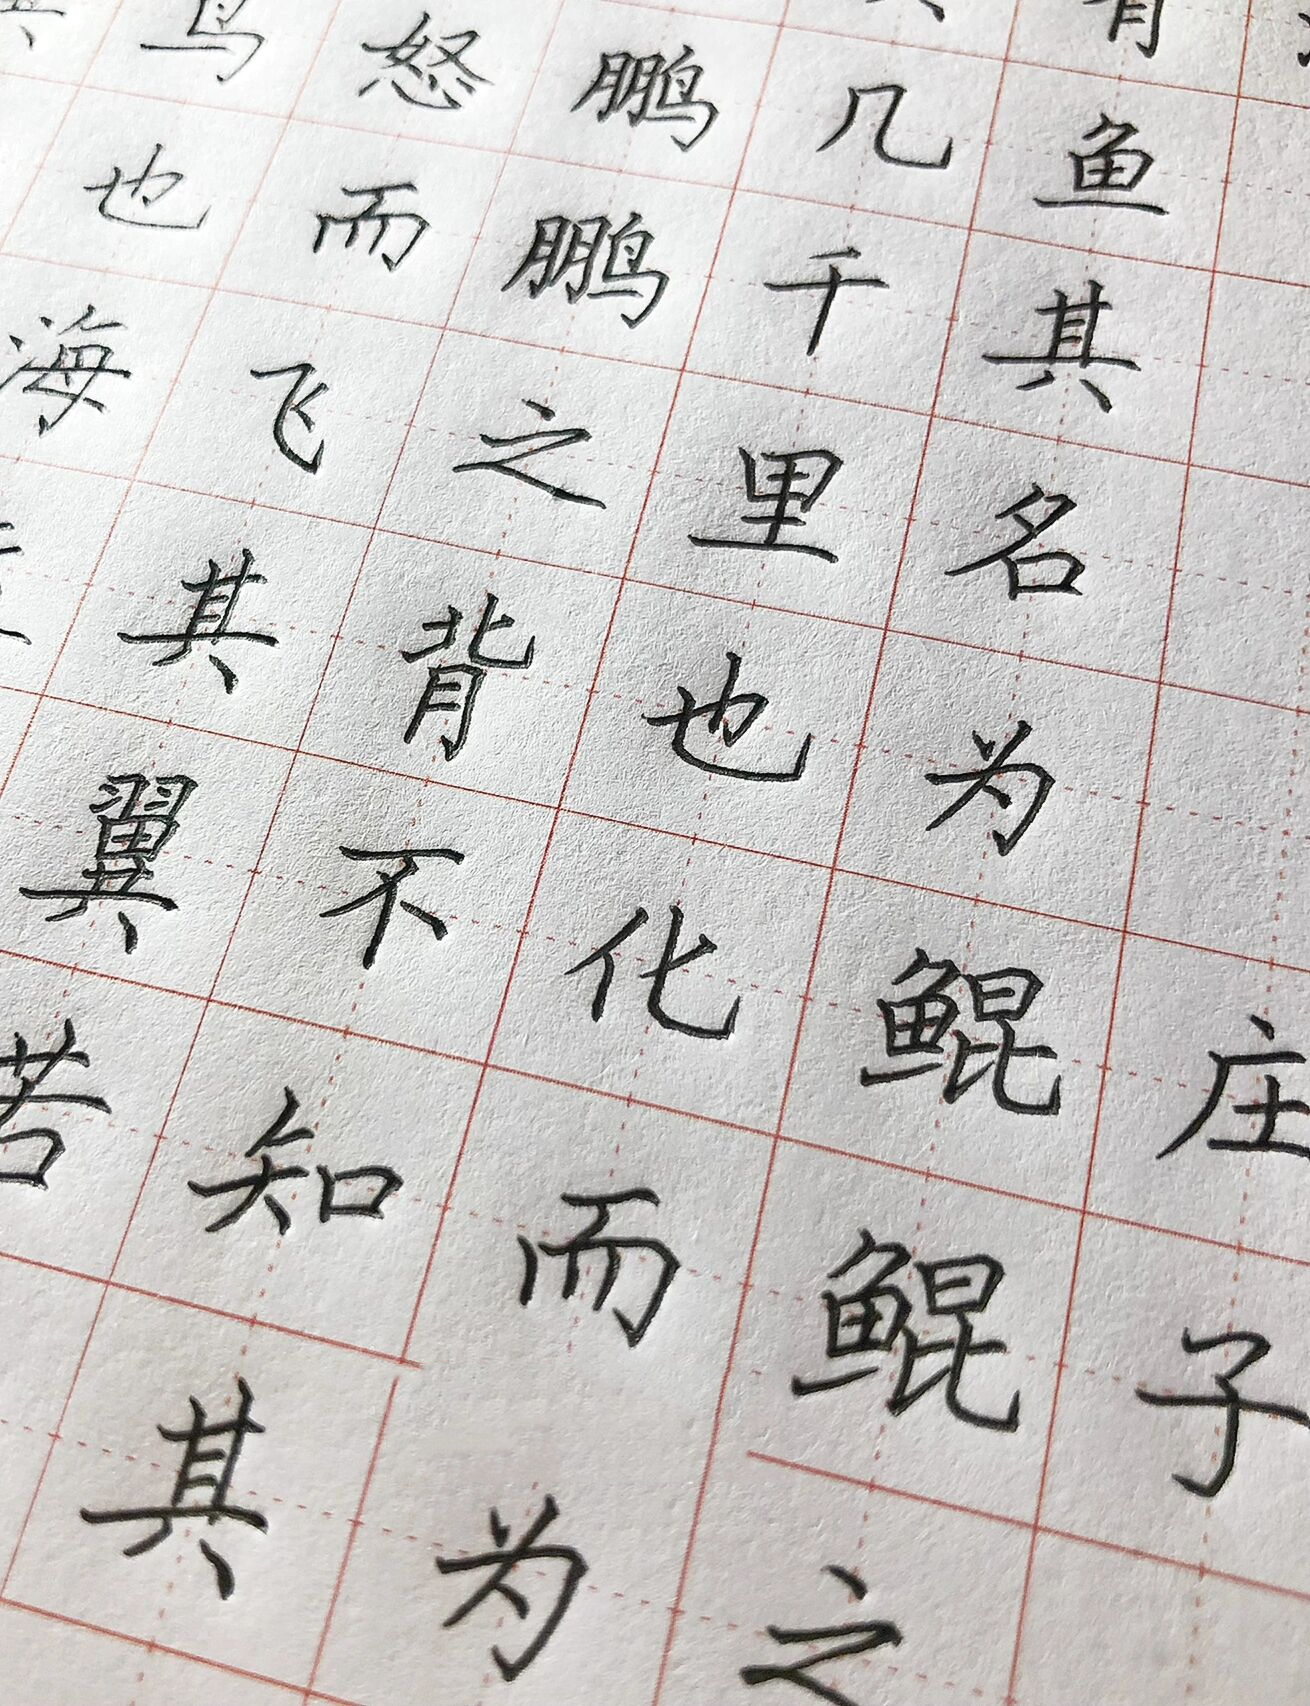 庄子
有鱼其名为鲲鲲之
几千里也化而为
鹏鹏之背不知其
怒而飞其翼若
鸟也海